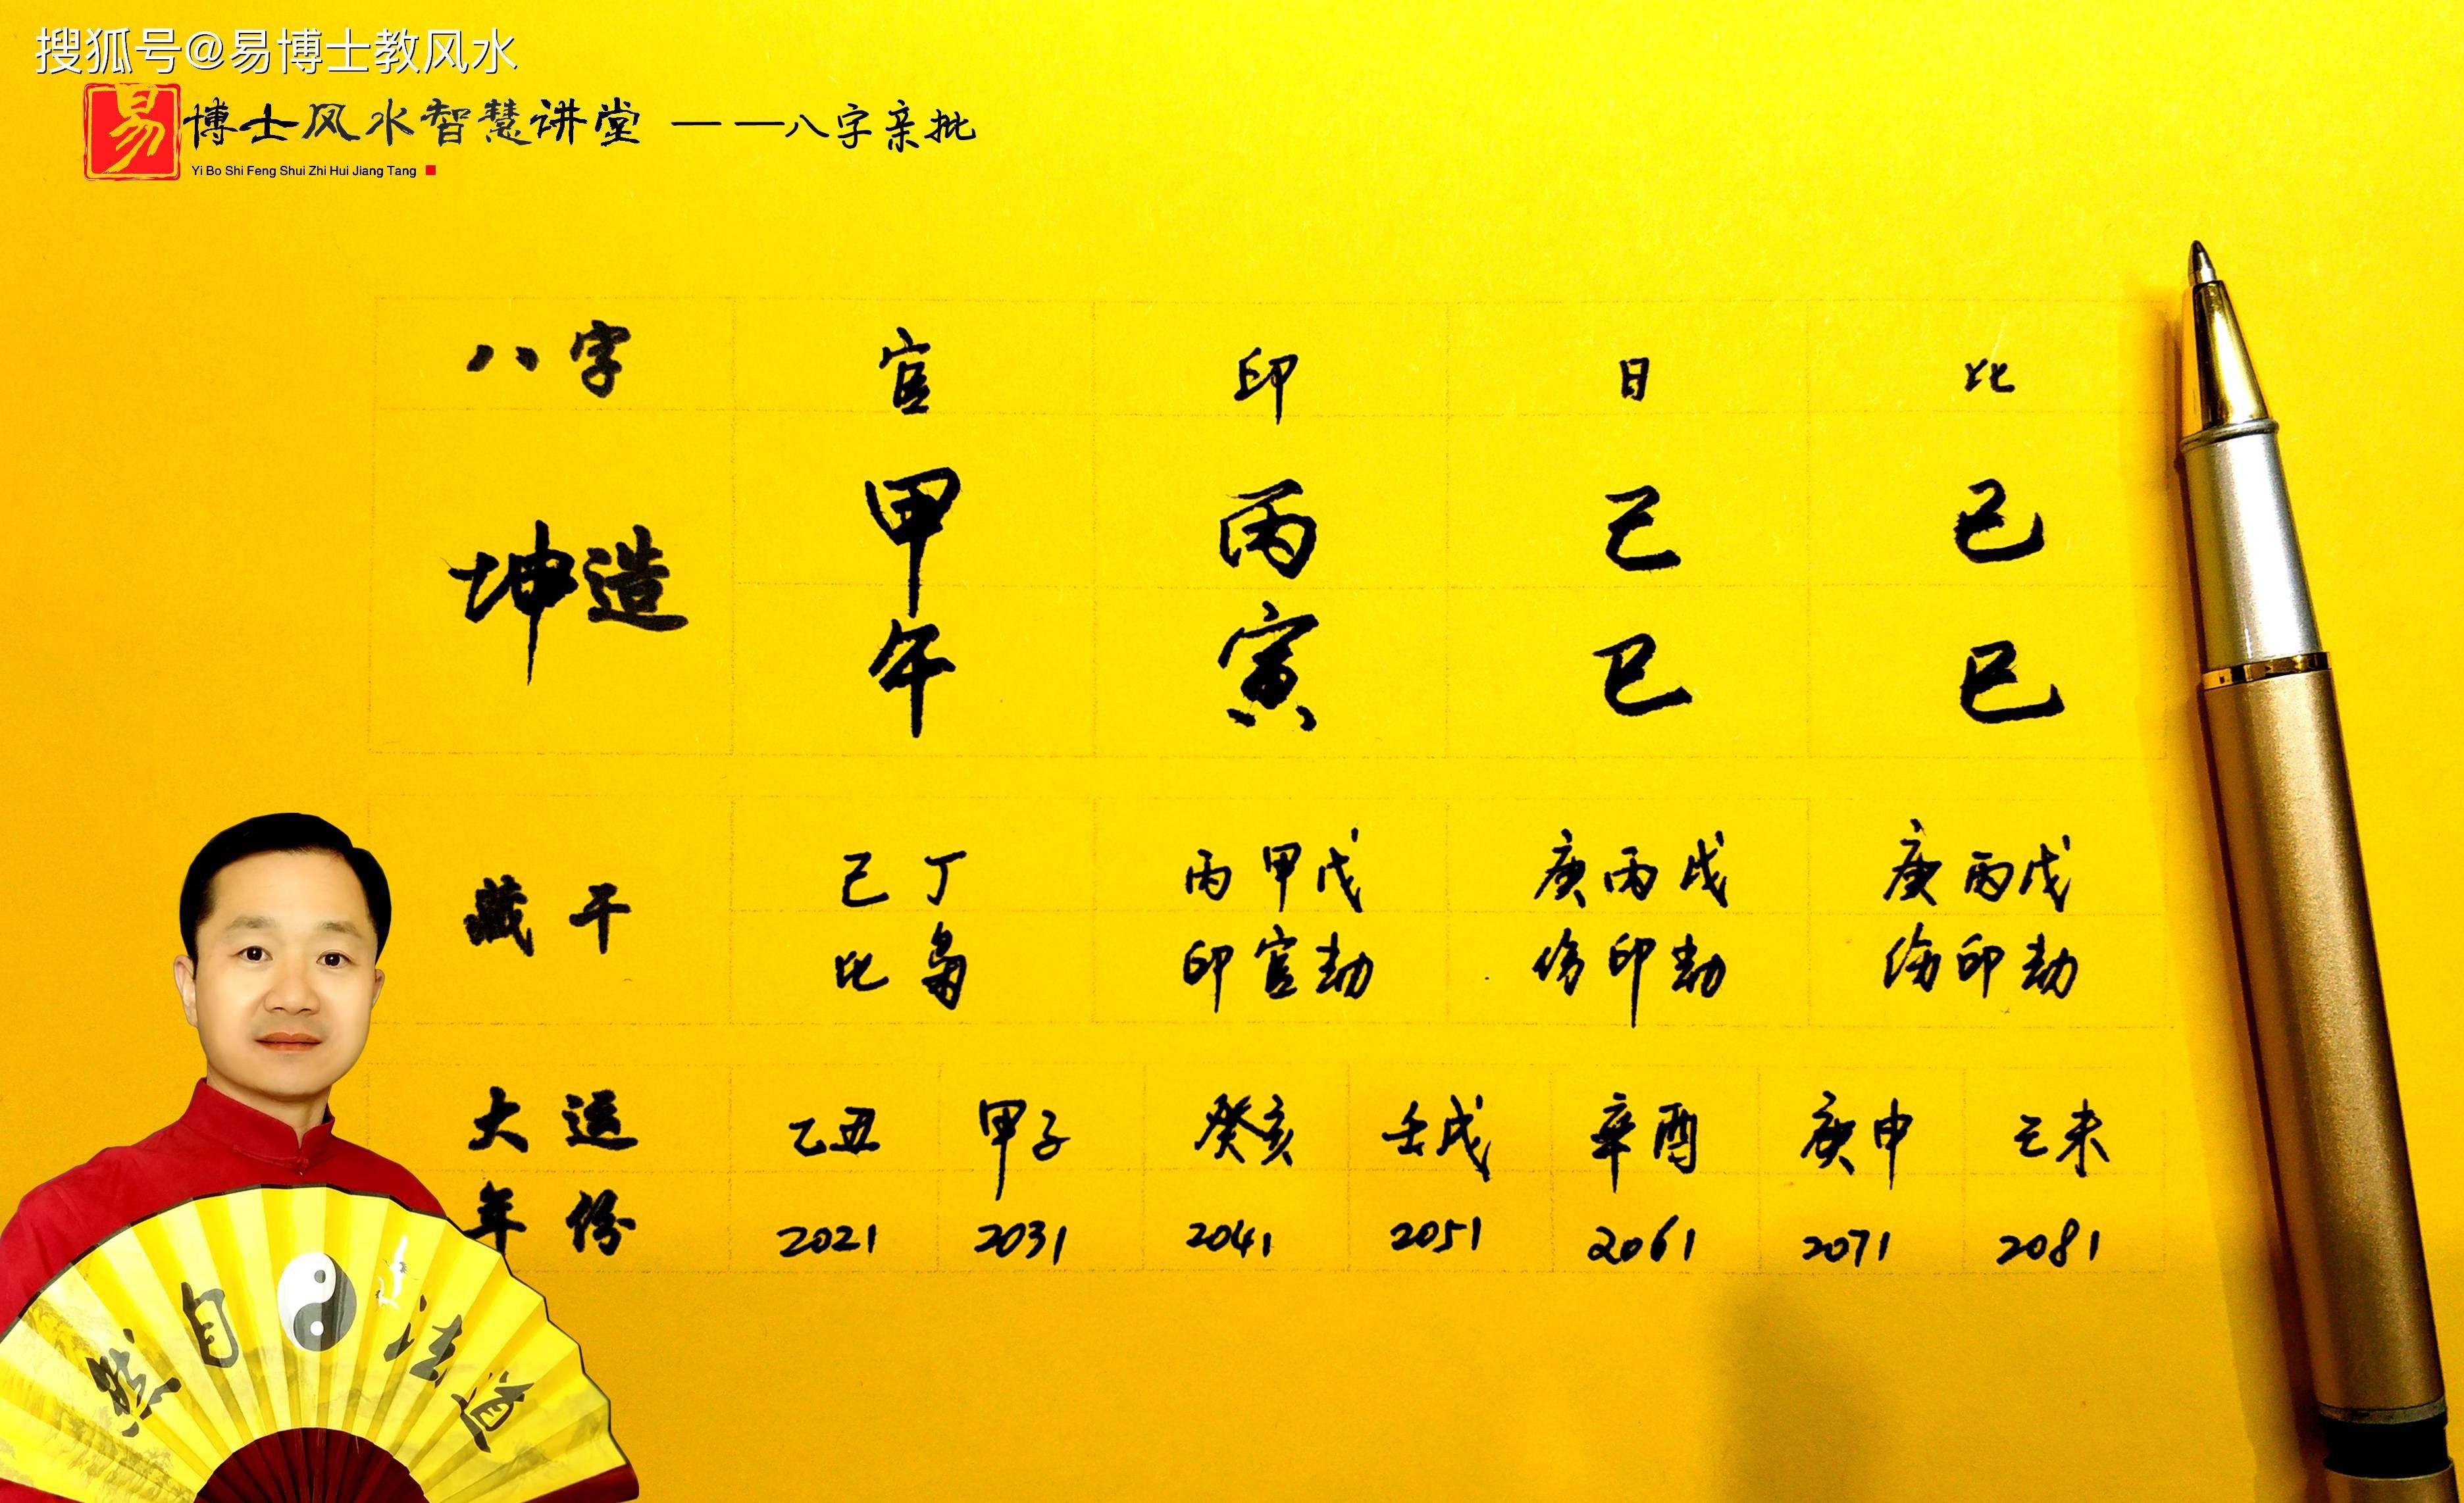 搜狐号@易博士教风水
易 博士风水智慧讲堂 ——八字亲批
Yi Bo Shi Feng Shui Zhi Hui Jiang Tang
八字 官 印 日 比
坤造 甲 丙 己 己
午 寅 巳 巳
藏干 己丁 丙甲戊 庚丙戊 庚丙戊
比枭 印官劫 伤印劫 伤印劫
大运 乙丑 甲子 癸亥 壬戌 辛酉 庚申 己未
年份 2021 2031 2041 2051 2061 2071 2081
然自法道